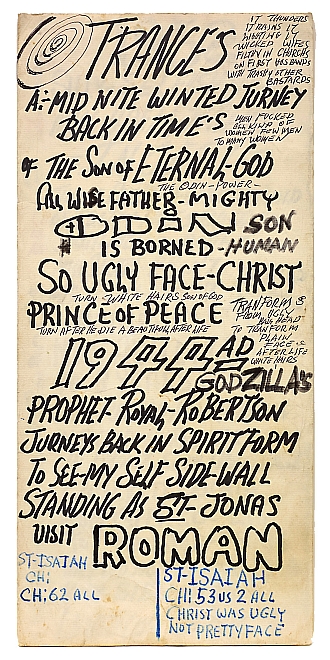 TRANCE'S
IT THUNDERS
IT RAINS IT
WICKED WIFES
FILTHY IN CHURCHS
ON FIRST HUSBANDS
WITH TRASHY OTHER
BASTARDS
A-MID NITE WINTED JURNEY
BACK IN TIME'S
WOMEN FOW MEN
TO MANY WOMEN
OF THE SON OF ETERNAL-GOD
THE ODIN-POWER-
ALL WISE FATHER-MIGHTY
ODIN SON
IS BORNED-HUMAN
SO UGLY FACE-CHRIST
TURN WHITE HAIRS SON OF GOD
PRINCE OF PEACE
TURN AFTER HE DIE A BEAUTIFUL AFTER LIFE
TRANFORM'S
FROM UGLY
HEAD
TO TRANFORM
PLAIN
FACE
AFTER LIFE
WHITE HAIRS
1944 AD
GODZILLA'S
PROPHET ROYAL-ROBERTSON
JURNEYS BACK IN SPIRIT FORM
TO SEE-MY SELF SIDE-WALL
STANDING AS ST-JONAS
VISIT ROMAN
ST-ISAIAH
CH;
CH;62 ALL
ST-ISAIAH
CH;53 US 2 ALL
CHRIST WAS UGLY
NOT PRETTY FACE